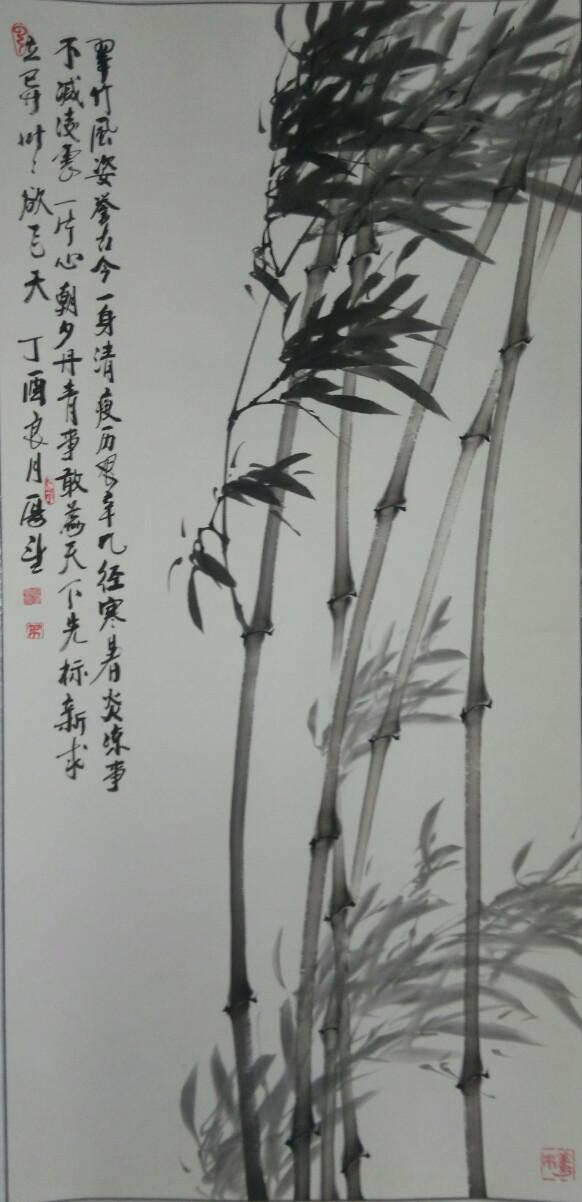 翠竹風姿誉古今一身清瘦历艰辛几经寒暑炎凉事
不减凌雲一片心朝夕丹青事敢為天下先标新求
立异欲天 丁酉良月